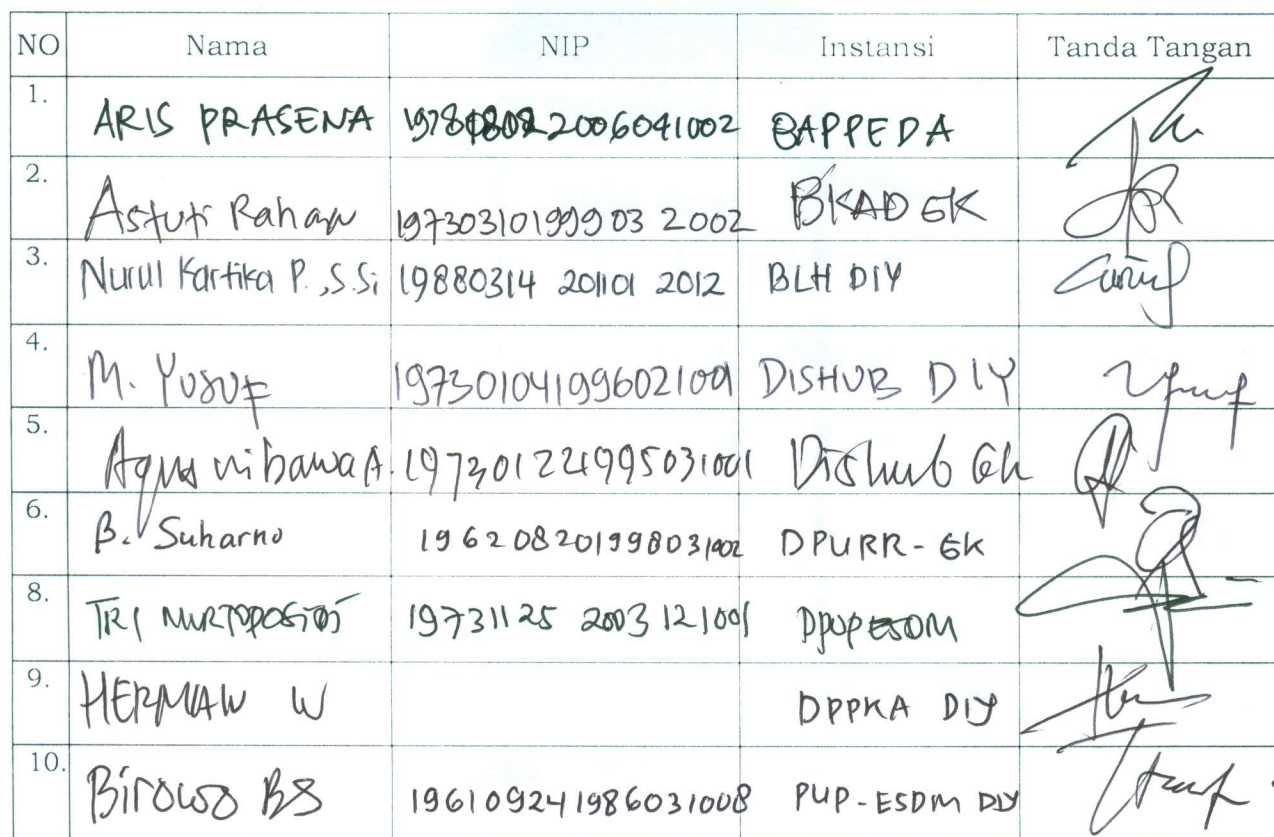 NO Nama NIP Instansi Tanda Tangan
1. ARIS PRASENA 2006041002 BAPPEDA
2. Astuti Rahayu 19730310199903 2002 BKAD GK
3. Nurul Kartika P., S.Si 19880314 201101 2012 BLH DIY
4. M. Yusuf 197301041996021001 DISHUB DIY
5. Agus Wibawa A. 197301221995031001 Dishub Gk
6. B. Suharno 196208201998031002 DPURR - GK
8. TRI 19731125 2003 121001 DPUPESDM
9. HERMAN W DPPKA DIY
10. Birowo BS 196109241986031008 PUP-ESDM DIY